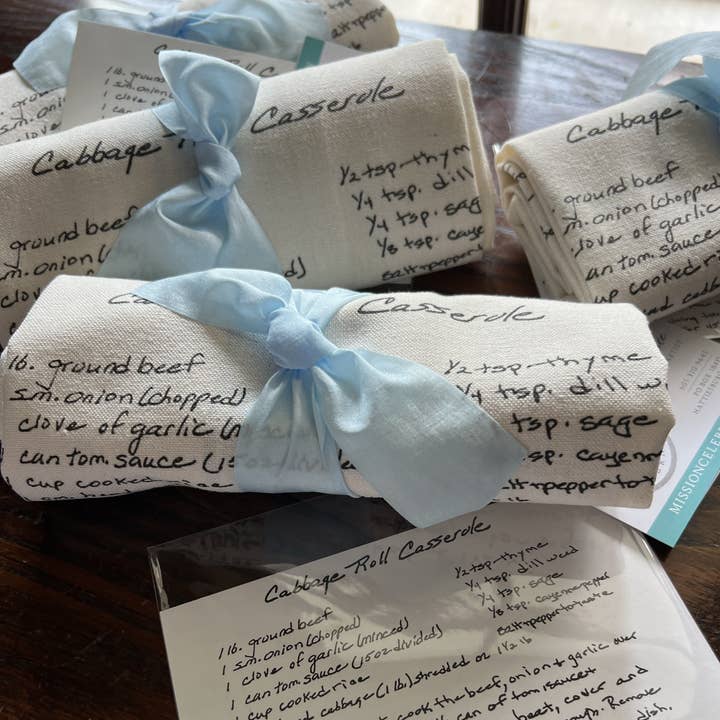 Cabbage Roll C
1 lb. ground
1 sm. onion
1 clove of
Cabbage R Casserole
ground beef
sm. onion (chopped)
clove of garlic
can tom. sauce
cup cooked rice
½ tsp-thym
¼ tsp. dill
¼ tsp. sag
⅛ tsp. caye
salt+pepper
Cabbage
ground beef
m. onion (chopped)
clove of garlic
an tom. sauce
up cooked rice
Ca Casserole
lb. ground beef
sm. onion (chopped)
clove of garlic (m
can tom. sauce (15oz-divided)
cup cooked rice
½ tsp-thyme
¼ tsp. dill w
tsp. sage
sp. cayenne
t+pepper to t
MISSIONCELEB
Cabbage Roll Casserole
1 lb. ground beef
1 sm. onion (chopped)
1 clove of garlic (minced)
1 can tom. sauce (15oz divided)
1 cup cooked rice
cabbage (1 lb) shredded or 1½ lb
½ tsp-thyme
¼ tsp. dill weed
¼ tsp. sage
⅛ tsp. cayenne pepper
salt+pepper to taste
cook the beef, onion + garlic over
can of tom. sauce +
heat, cover and
Remove
dish.